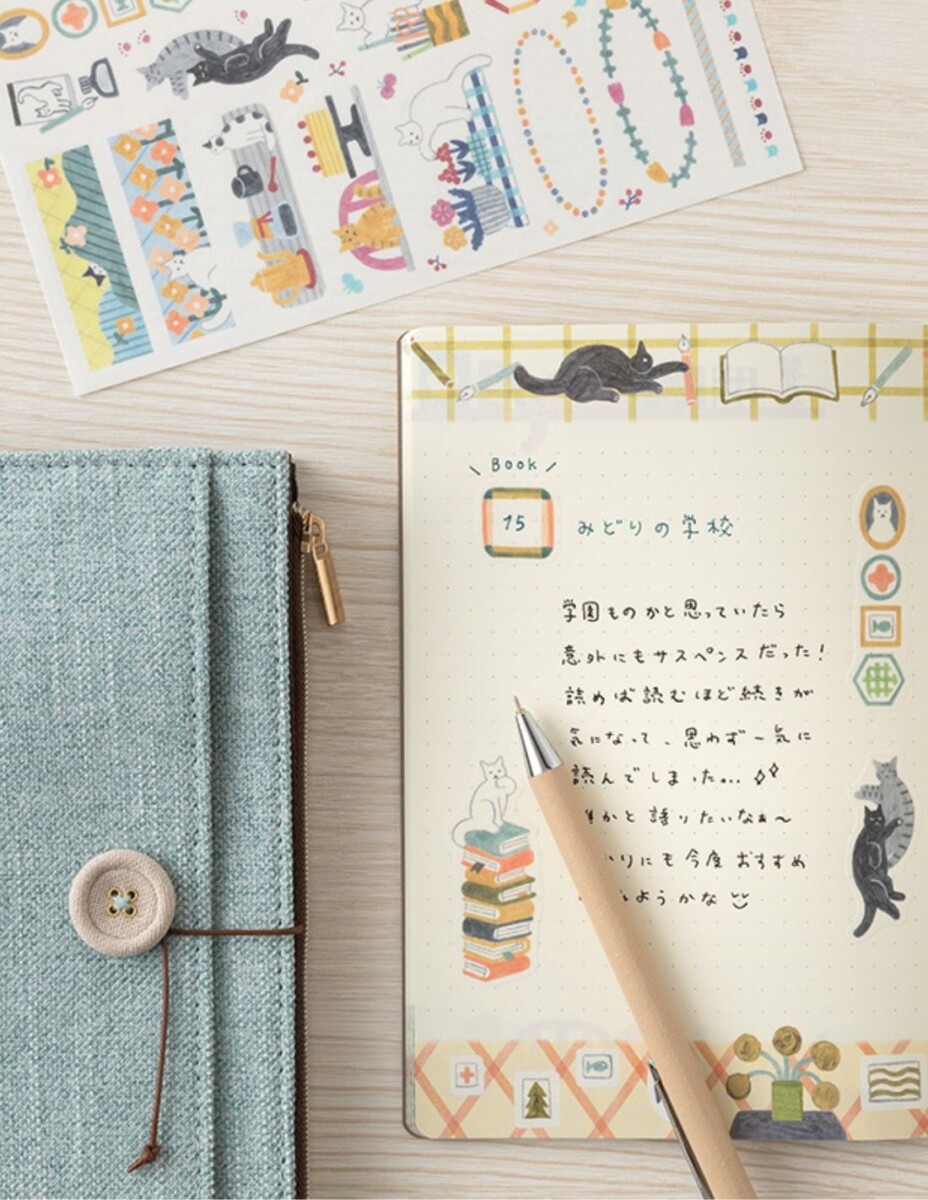 Book
15
みどりの学校
学園ものかと思っていたら
意外にもサスペンスだった!
読めば読むほど続きが
気になって、思わず一気に
読んでしまった...
かと語りたいなぁ〜
りにも今度おすすめ
ようかな